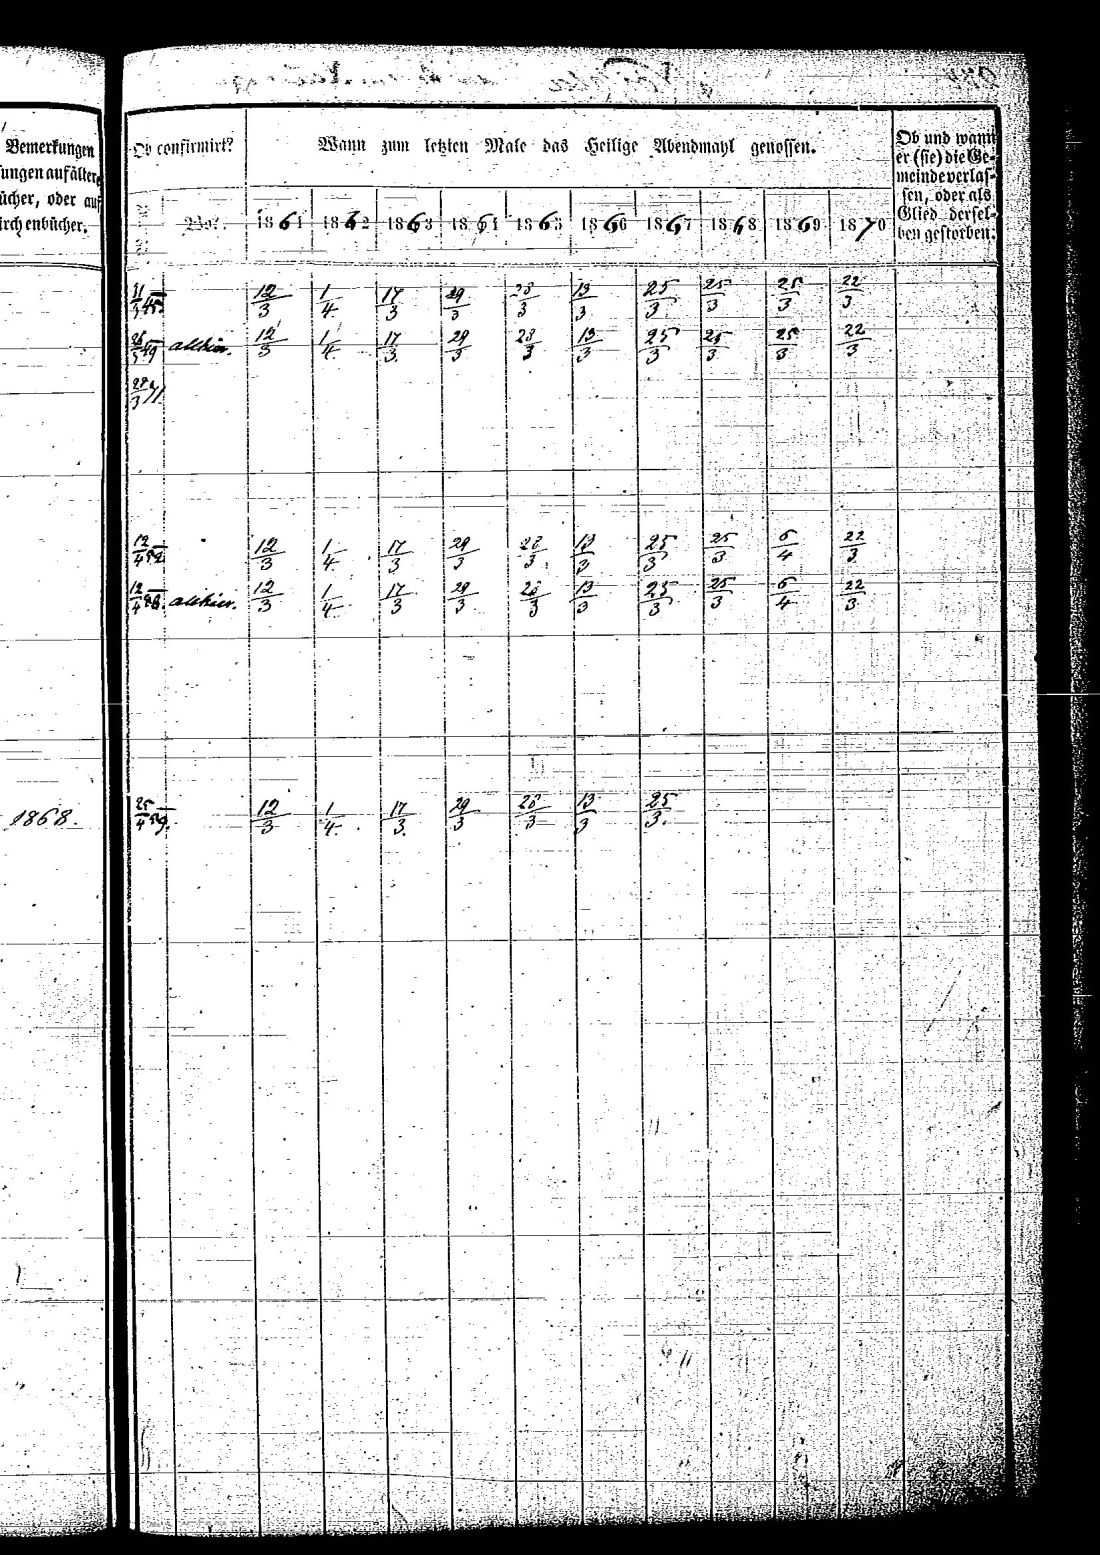 Bemerkungen
ungen auf ältere
ücher, oder auf
irchenbücher.
Ob confirmirt?
Wann zum letzten Male das Heilige Abendmahl genossen.
Ob und wann
er (sie) die Ge-
meinde verlas-
sen, oder als
Glied dersel-
ben gestorben.
Wo?
1861 1862 1863 1864 1865 1866 1867 1868 1869 1870
12/3 1/4 17/3 29/3 28/3 13/3 25/3 25/3 25/3 22/3
allhier. 12/3 1/4 17/3 29/3 28/3 13/3 25/3 25/3 25/3 22/3
28/3 71
12/4 12/3 1/4 17/3 29/3 28/3 13/3 25/3 25/3 6/4 22/3
12/4 allhier. 12/3 1/4 17/3 29/3 28/3 13/3 25/3 25/3 6/4 22/3
1868. 25/4 59. 12/3 1/4. 17/3. 29/3 28/3 13/3 25/3.